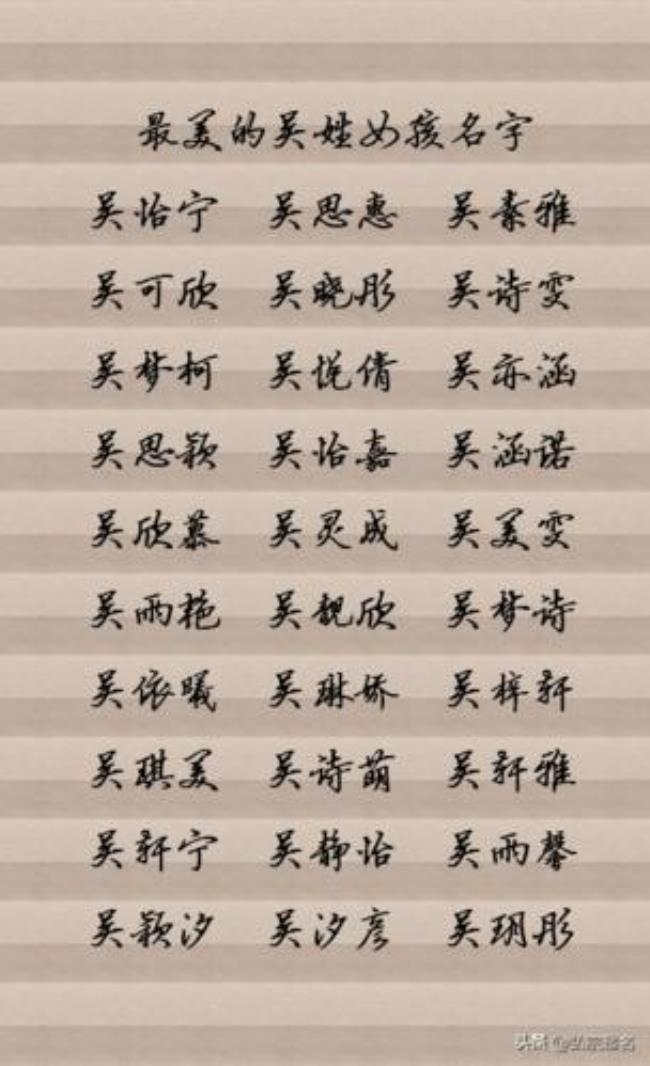 最美的吴姓女孩名字
吴怡宁 吴思惠 吴素雅
吴可欣 吴晓彤 吴诗雯
吴梦柯 吴悦倩 吴亦涵
吴思颖 吴怡嘉 吴涵诺
吴欣慕 吴灵成 吴美雯
吴雨艳 吴靓欣 吴梦诗
吴依曦 吴琳娇 吴梓轩
吴琪美 吴诗萌 吴轩雅
吴轩宁 吴静怡 吴雨馨
吴颖汐 吴汐彦 吴玥彤
头条